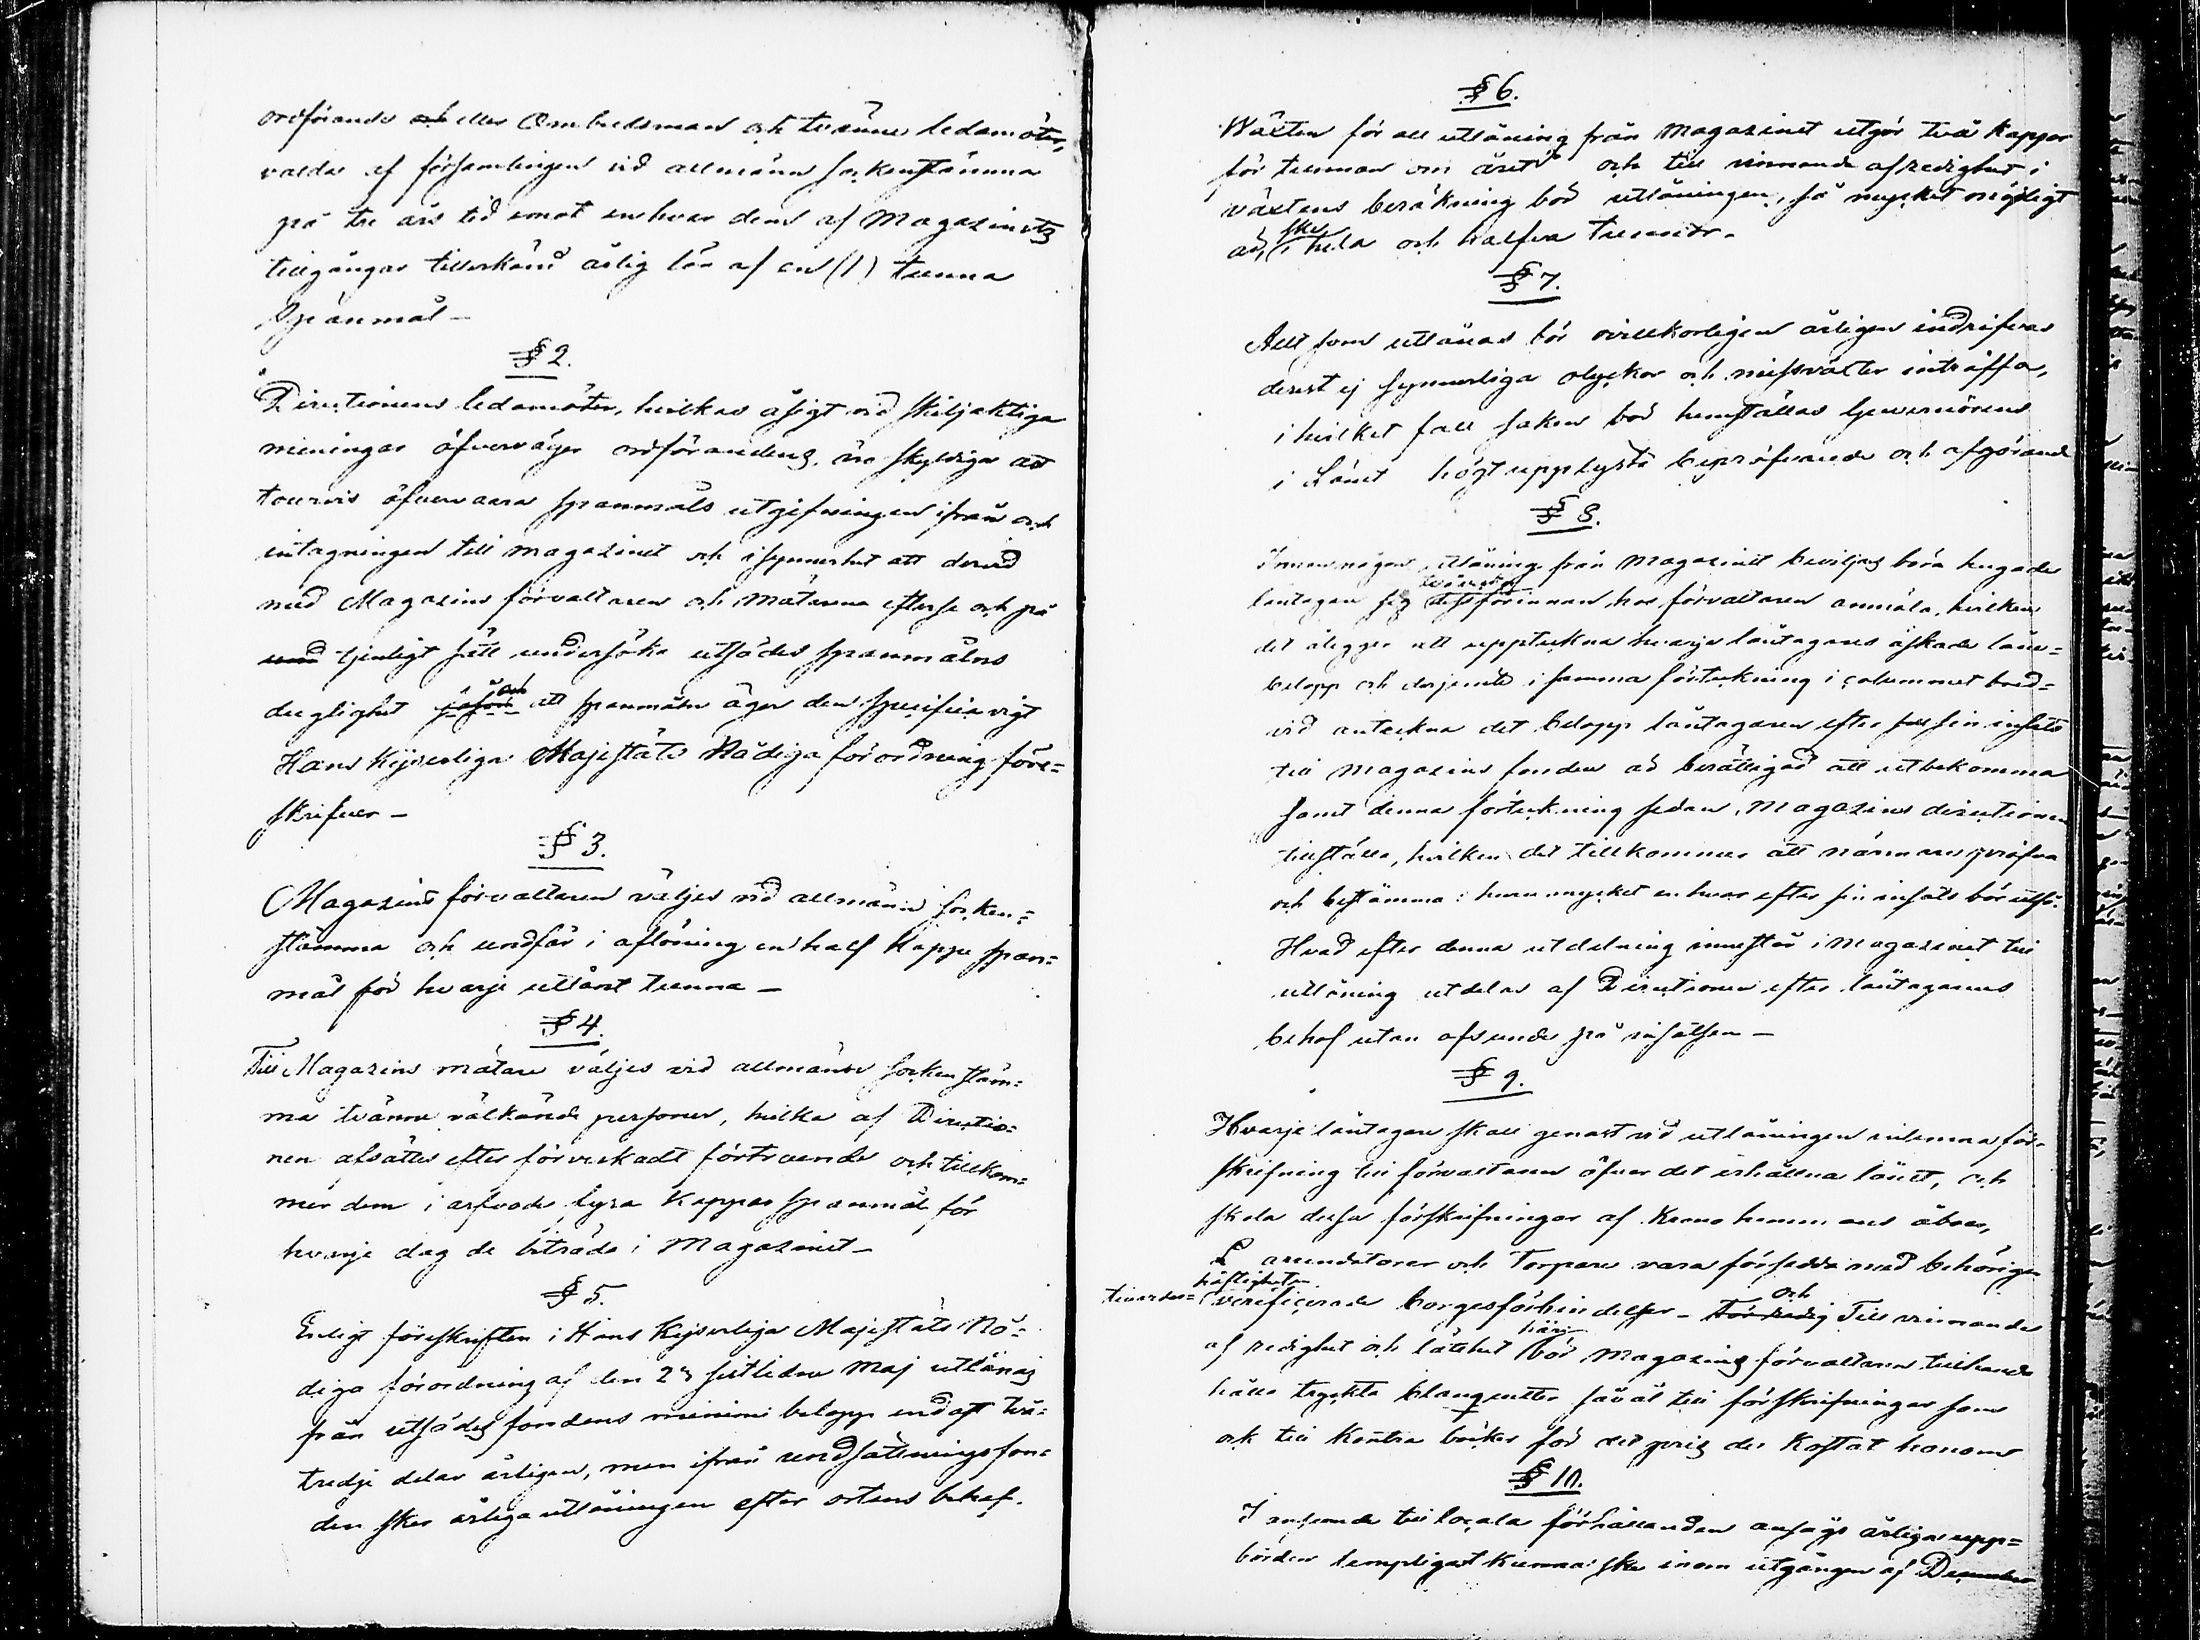 ordförande och eller Ombudsman och tvänne ledamöter,
valde af församlingen vid allmänn sockenstämma
på tre års tid emot enhvar dem af Magazinets
tillgångar tillerkänd årlig lön af en (1) tunna
Spanmål —
§ 2.
Directionens ledamöter, hvilkas åsigt vid skiljaktiga
meningar öfverväger ordförandens, äro skyldiga att
tourvis öfvervara spanmåls utgifningen ifrån och
intagningen till magazinet och isynnerhet att dervid
med Magazins förvaltaren och Mätarena efterse och på
med tjenligt sätt undersöka utsädes spanmålns
duglighet jäfom och att spanmåln äger den specifica vigt
Hans Kejserliga Majestäts Nådiga förordning före=
skrifver —
§ 3.
Magazins förvaltaren väljes vid allmänn socken=
stämma och undfår i aflöning en half Kappe span=
mål för hvarje utlånt tunna —
§ 4.
Till Magazins mätare väljes vid allmänn sockenstäm=
ma tvänne välkände personer, hvilka af Directio=
nen afsättes efter förverkadt förtroende och tillkom=
mer dem i arfvode fyra Kappar spanmål för
hvarje dag de biträda i Magazinet —
§ 5.
Enligt föreskriften i Hans Kejserliga Majestäts Nå=
diga förordning af den 2 sistliden Maj utlånas
från utsädes fondens minimi belopp endast två=
tredje delar årligen, men ifrån undsättningsfon=
den sker årliga utlåningen efter ortens behof.
§ 6.
Wäxten för all utlåning från Magazinet utgör två Kappar
för tunnan om året och till vinnande af redighet i
växtens beräkning bör utlåningen, så mycket möjligt
är, ske i hela och halfva Tunnor —
§ 7.
Allt som utlånas bör ovillkorligen årligen indrifvas
derest ej synnerliga olyckor och missväxter inträffa,
i hvilket fall saken bör hemställas Gouvernörens
i Länet högt upplysta bepröfvande och afgörande
§ 8.
Innan någon utlåning från Magazinet beviljas böra hugade
låntagare sig dessförinnan hos förvaltaren anmäla, hvilken
det åligger att uppteckna hvarje låntagares äskade låne=
belopp och derjemte i samma förteckning i columnet bred=
vid anteckna det belopp låntagaren efter sin insats
till Magazins fonden är berättigad att utbekomma
samt denna förteckning sedan Magazins directionen
tillställa, hvilken det tillkommer att närmare pröfva
och bestämma: huru mycket enhvar efter sin insats bör utfå.
Hvad efter denna utdelning innestår i Magazinet till
utlåning utdelas af Directionen efter låntagarens
behof utan afseende på insatsen —
§ 9.
Hvarje låntagare skall genast vid utlåningen inlemna för=
skrifning till förvaltaren öfver det erhållna lånet, och
skola dessa förskrifningar af Krono hemmans åboer,
arrendatorer och Torpare vara försedda med behörigen
till vederhäftigheten verificerade borgesförbindelser — och Till vinnande
af redighet och lätthet härvid bör Magazins förvaltaren tillhanda
hålla tryckta blanquetter såväl till förskrifningar som
ock till Kontra böcker för det pris de Kostat honom
§ 10.
I anseende till locala förhållanden anses årliga upp=
börden lempligast kunna ske inom utgången af December